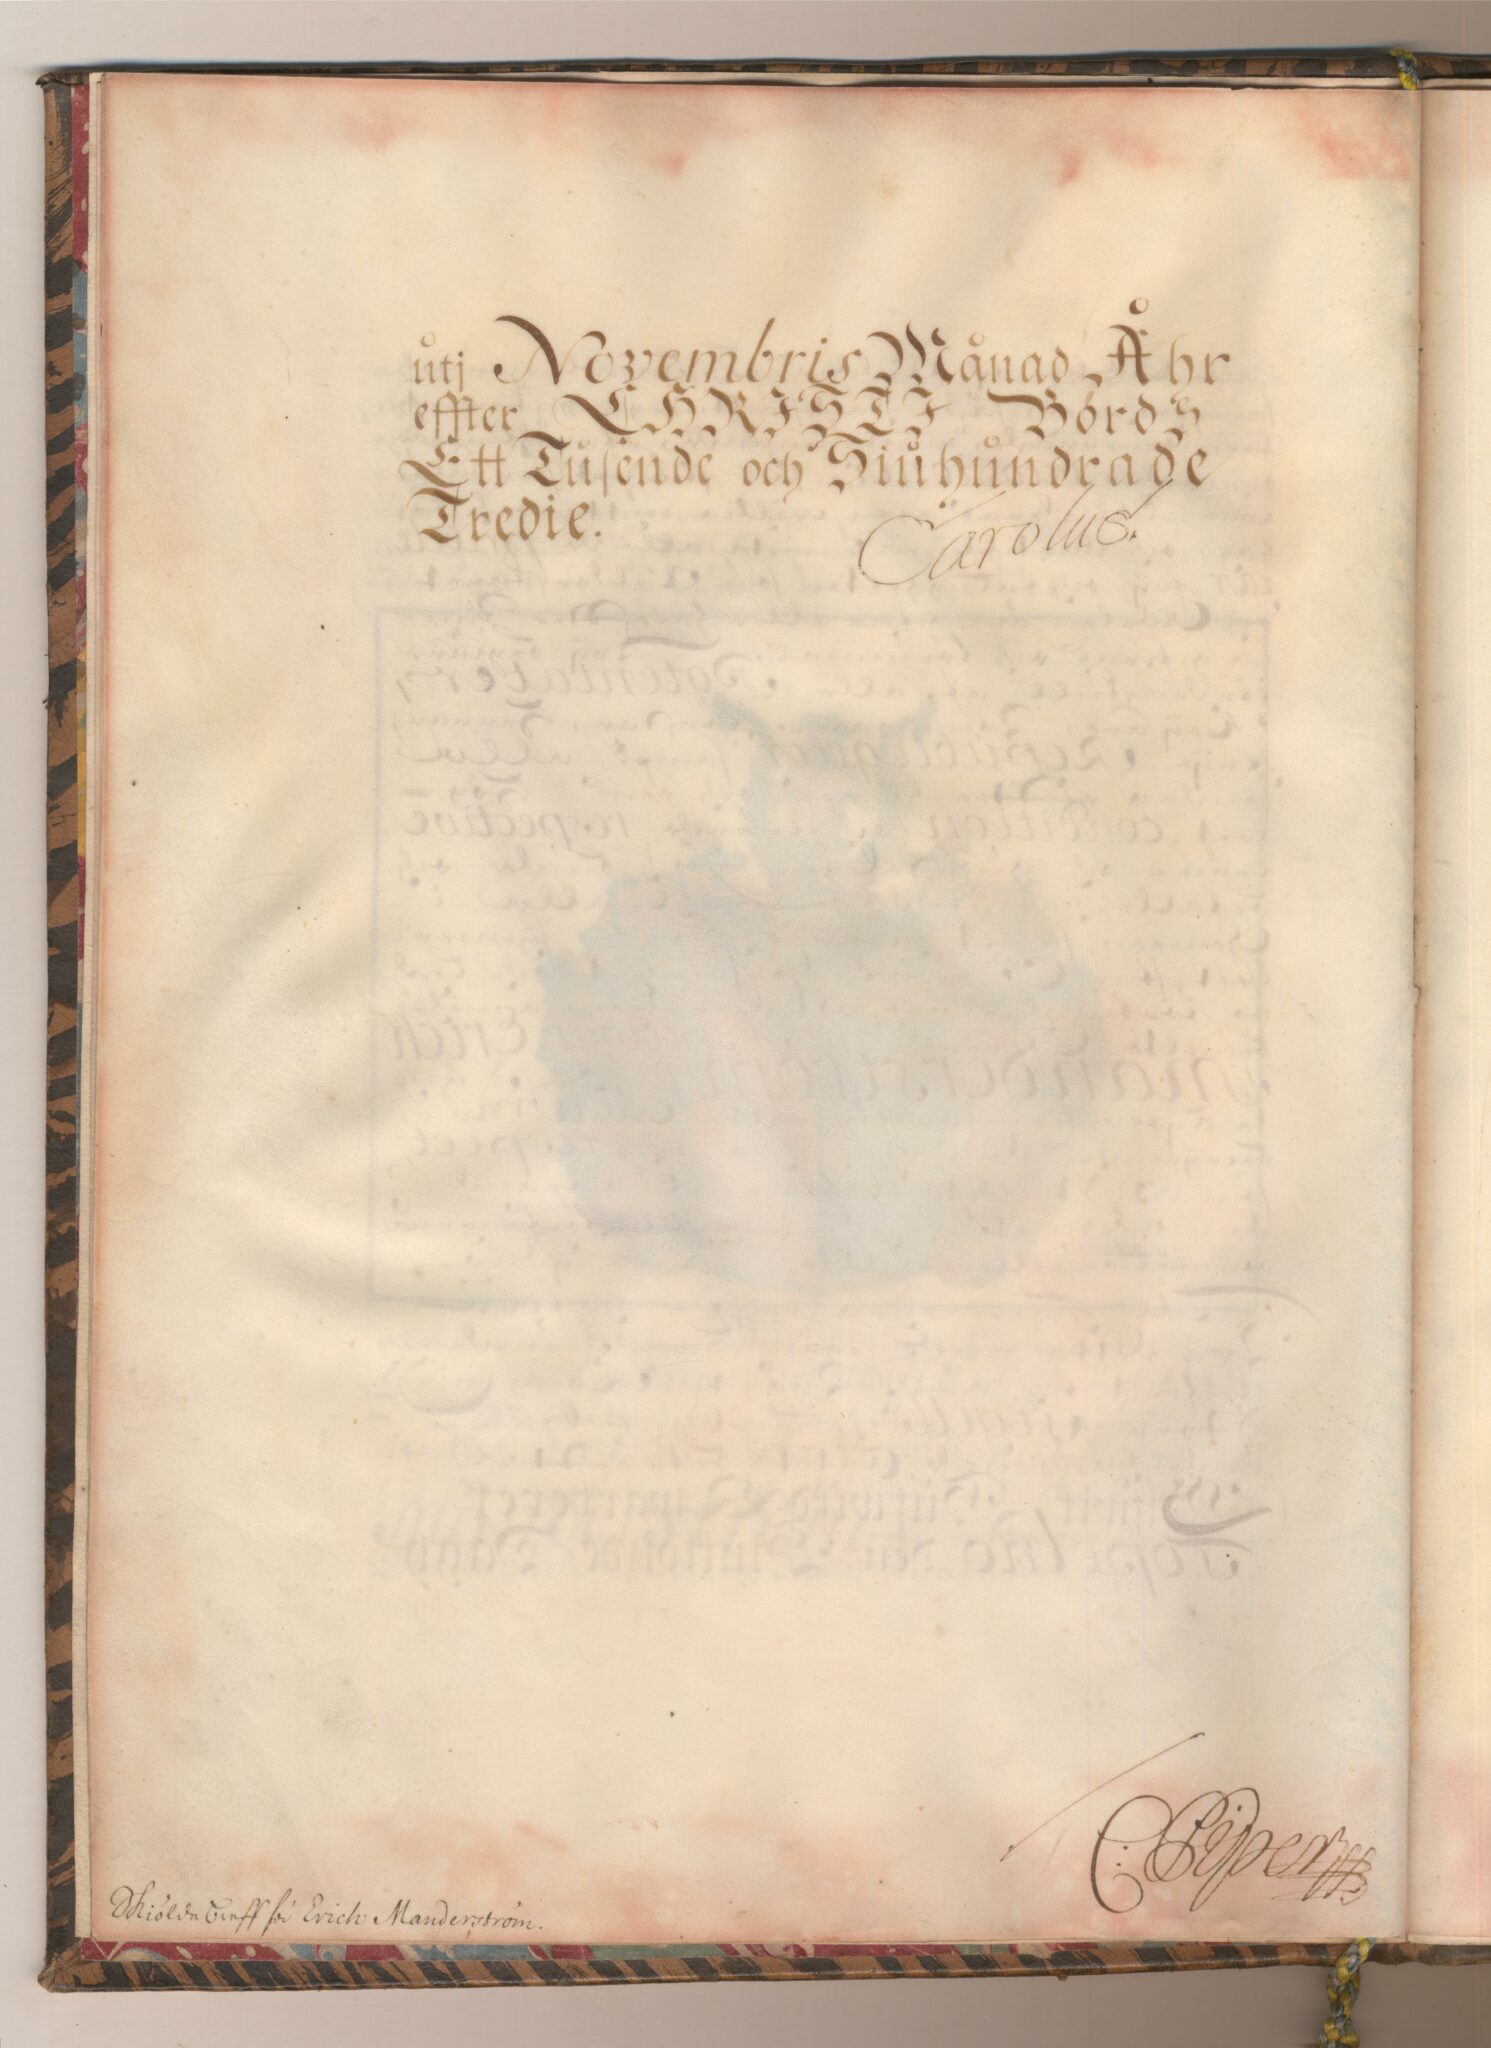 utj Novembris Månad Åhr
effter CHRISTI Börds
Ett Tusende och Siuhundrade
Tredie.
Carolus.
C: Piper
Skiölde Breff för Erich Manderström.